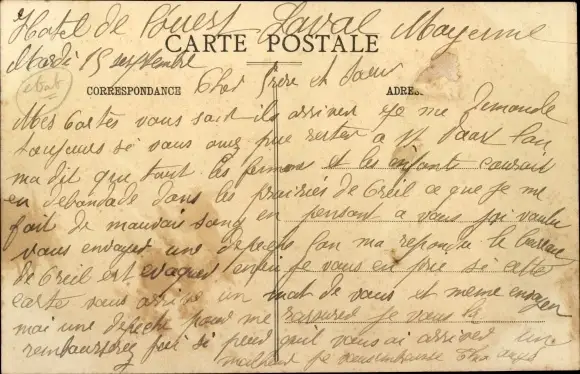 Hotel de l'Ouest Laval Mayenne
CARTE POSTALE
Mardi 15 septembre
Cher frere et soeur
CORRESPONDANCE
ADRES
Mes cartes vous sont ils arriver je me demande
toujours si vous avez pue rester a St l'on
ma dit que tout les femmes et les enfants courait
en debandade dans les prairies de Creil ce que je me
faite de mauvais sang en pensant a vous j'ai voulu
vous envoyer une depeche l'on ma repondu le bureau
de Creil est evaquer enfin je vous en prie si cette
carte vous arrive un mot de vous et meme envoyer
moi une depeche pour me rassurer je vous la
rembourserez j'ai si peur qu'il vous ai arriver une
malheur je